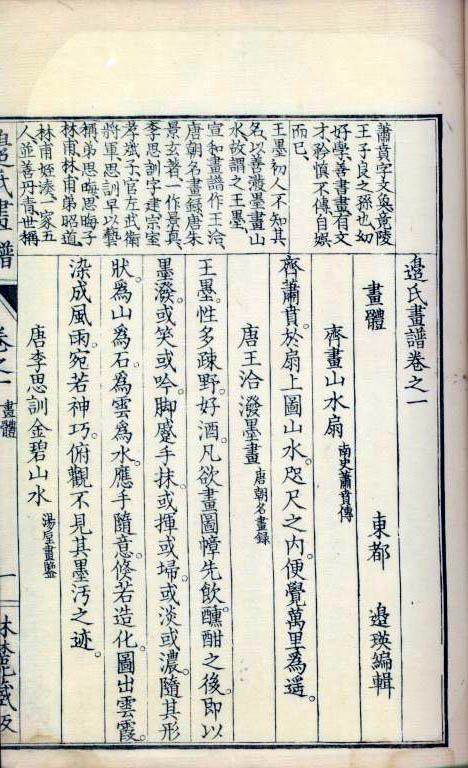 蕭賁字文奐竟陵
王子良之孫也、幼
好學善書畫有文
才矜慎不傳自娯
而已、
王墨初人不知其
名以善潑墨畫山
水故謂之王墨、
宣和畫譜作王洽、
唐朝名畫録唐朱
景玄著、一作景真、
李思訓字建宗室
孝斌子官左武衛
將軍、思訓早以藝
稱弟思晦思晦子
林甫、林甫弟昭道、
林甫姪湊一家五
人並善丹青世稱
邉氏畫譜卷之一
畫體 東都 邉瑛編輯
齊畫山水扇 南史蕭賁傳
齊蕭賁。於扇上圖山水。咫尺之内。便覺萬里為遥。
唐王洽潑墨畫 唐朝名畫録
王墨。性多疎野。好酒。凡欲畫圖幛。先飲。醺酣之後。即以
墨潑。或笑或吟。脚蹙手抹。或揮或埽。或淡或濃。隨其形
狀。為山為石。為雲為水。應手隨意。倐若造化。圖出雲霞。
染成風雨。宛若神巧。俯觀不見其墨汚之迹。
唐李思訓金碧山水 湯垕畫鑒
邉氏畫譜 卷之一 畫體 一